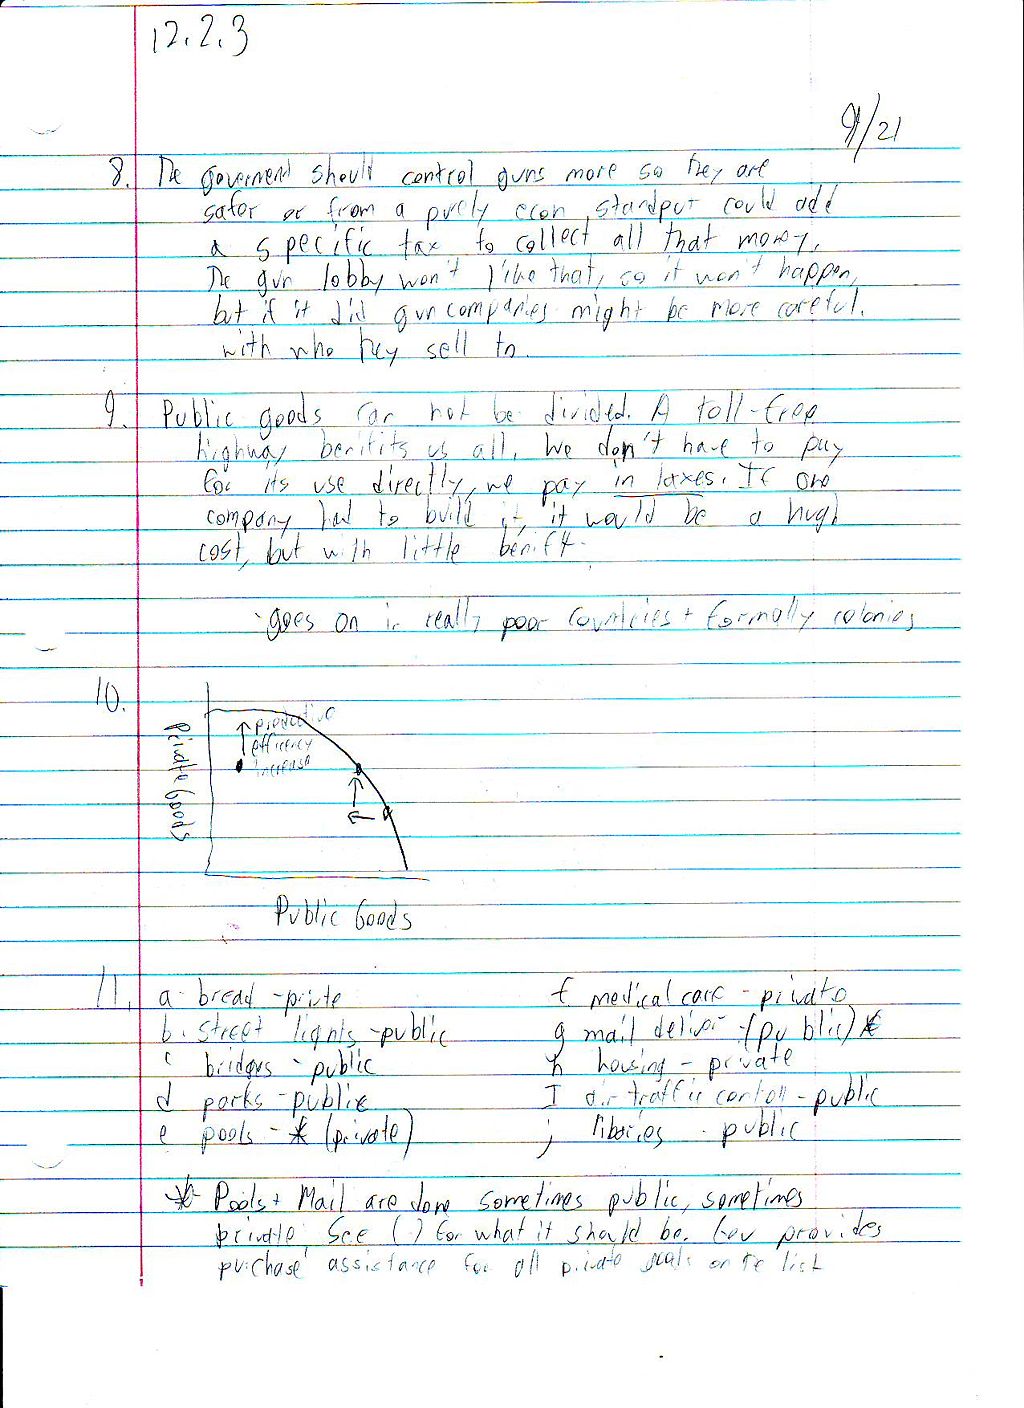 12.2.3
9/21
8. The goverment should control guns more so they are
safer or from a purely econ, standput could add
a specific tax to collect all that money.
The gun lobby won't like that, so it won't happen,
but if it did gun companies might be more careful.
with who they sell to.
9. Public goods can not be divided. A toll-free
highway benifits us all. We don't have to pay
for its use directly, we pay in taxes. If one
company had to build it, it would be a hugh
cost, but with little benift.
goes on in really poor countries + formally colonies
10.
productive
efficency
increase
Private Goods
Public Goods
11. a- bread - private f medical care - private
b. street lights - public g mail deliver - (public) *
c bridges - public h housing - private
d parks - public I air traffic contoll - public
e pools - * (private) j libaries - public
* Pools + Mail are done sometimes public, sometimes
private. See ( ) for what it should be. Gov provides
purchase assistance for all private goods on the list